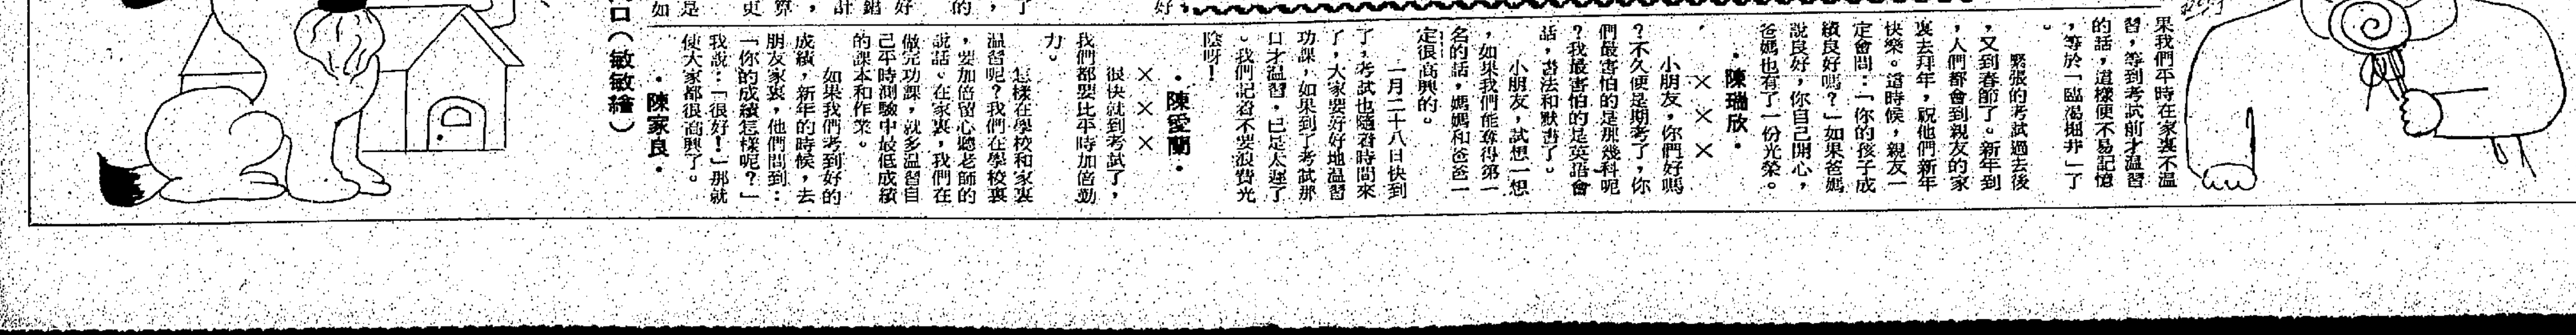 果我們平時在家裏不溫
習，等到考試前才溫習
的話，這樣便不易記憶
，等於「臨渴掘井」了
。
緊張的考試過去後
，又到春節了。新年到
，人們都會到親友的家
裏去拜年，祝他們新年
快樂。這時候，親友一
定會問：「你的孩子成
績良好嗎？」如果爸媽
說良好，你自己開心，
爸媽也有了一份光榮。
・陳瑞欣・
×××
小朋友，你們好嗎
？不久便是期考了，你
們最害怕的是那幾科呢
？我最害怕的是英語會
話，書法和默書了。
小朋友，試想一想
，如果我們能奪得第一
名的話，媽媽和爸爸一
定很高興的。
一月二十八日快到
了，考試也隨着時間來
了，大家要好好地溫習
功課，如果到了考試那
日才溫習，已是太遲了
。我們記着不要浪費光
陰呀！
・陳愛蘭・
×××
很快就到考試了，
我們都要比平時加倍勤
力。
怎樣在學校和家裏
溫習呢？我們在學校裏
，要加倍留心聽老師的
說話。在家裏，我們在
做完功課，就多溫習自
己平時測驗中最低成績
的課本和作業。
如果我們考到好的
成績，新年的時候，去
朋友家裏，他們問到：
「你的成績怎樣呢？」
我說：「很好！」那就
使大家都很高興了。
・陳家良・
口（敏敏繪）
好，
了
，
的
好
錯
計
，
算
更
是
如